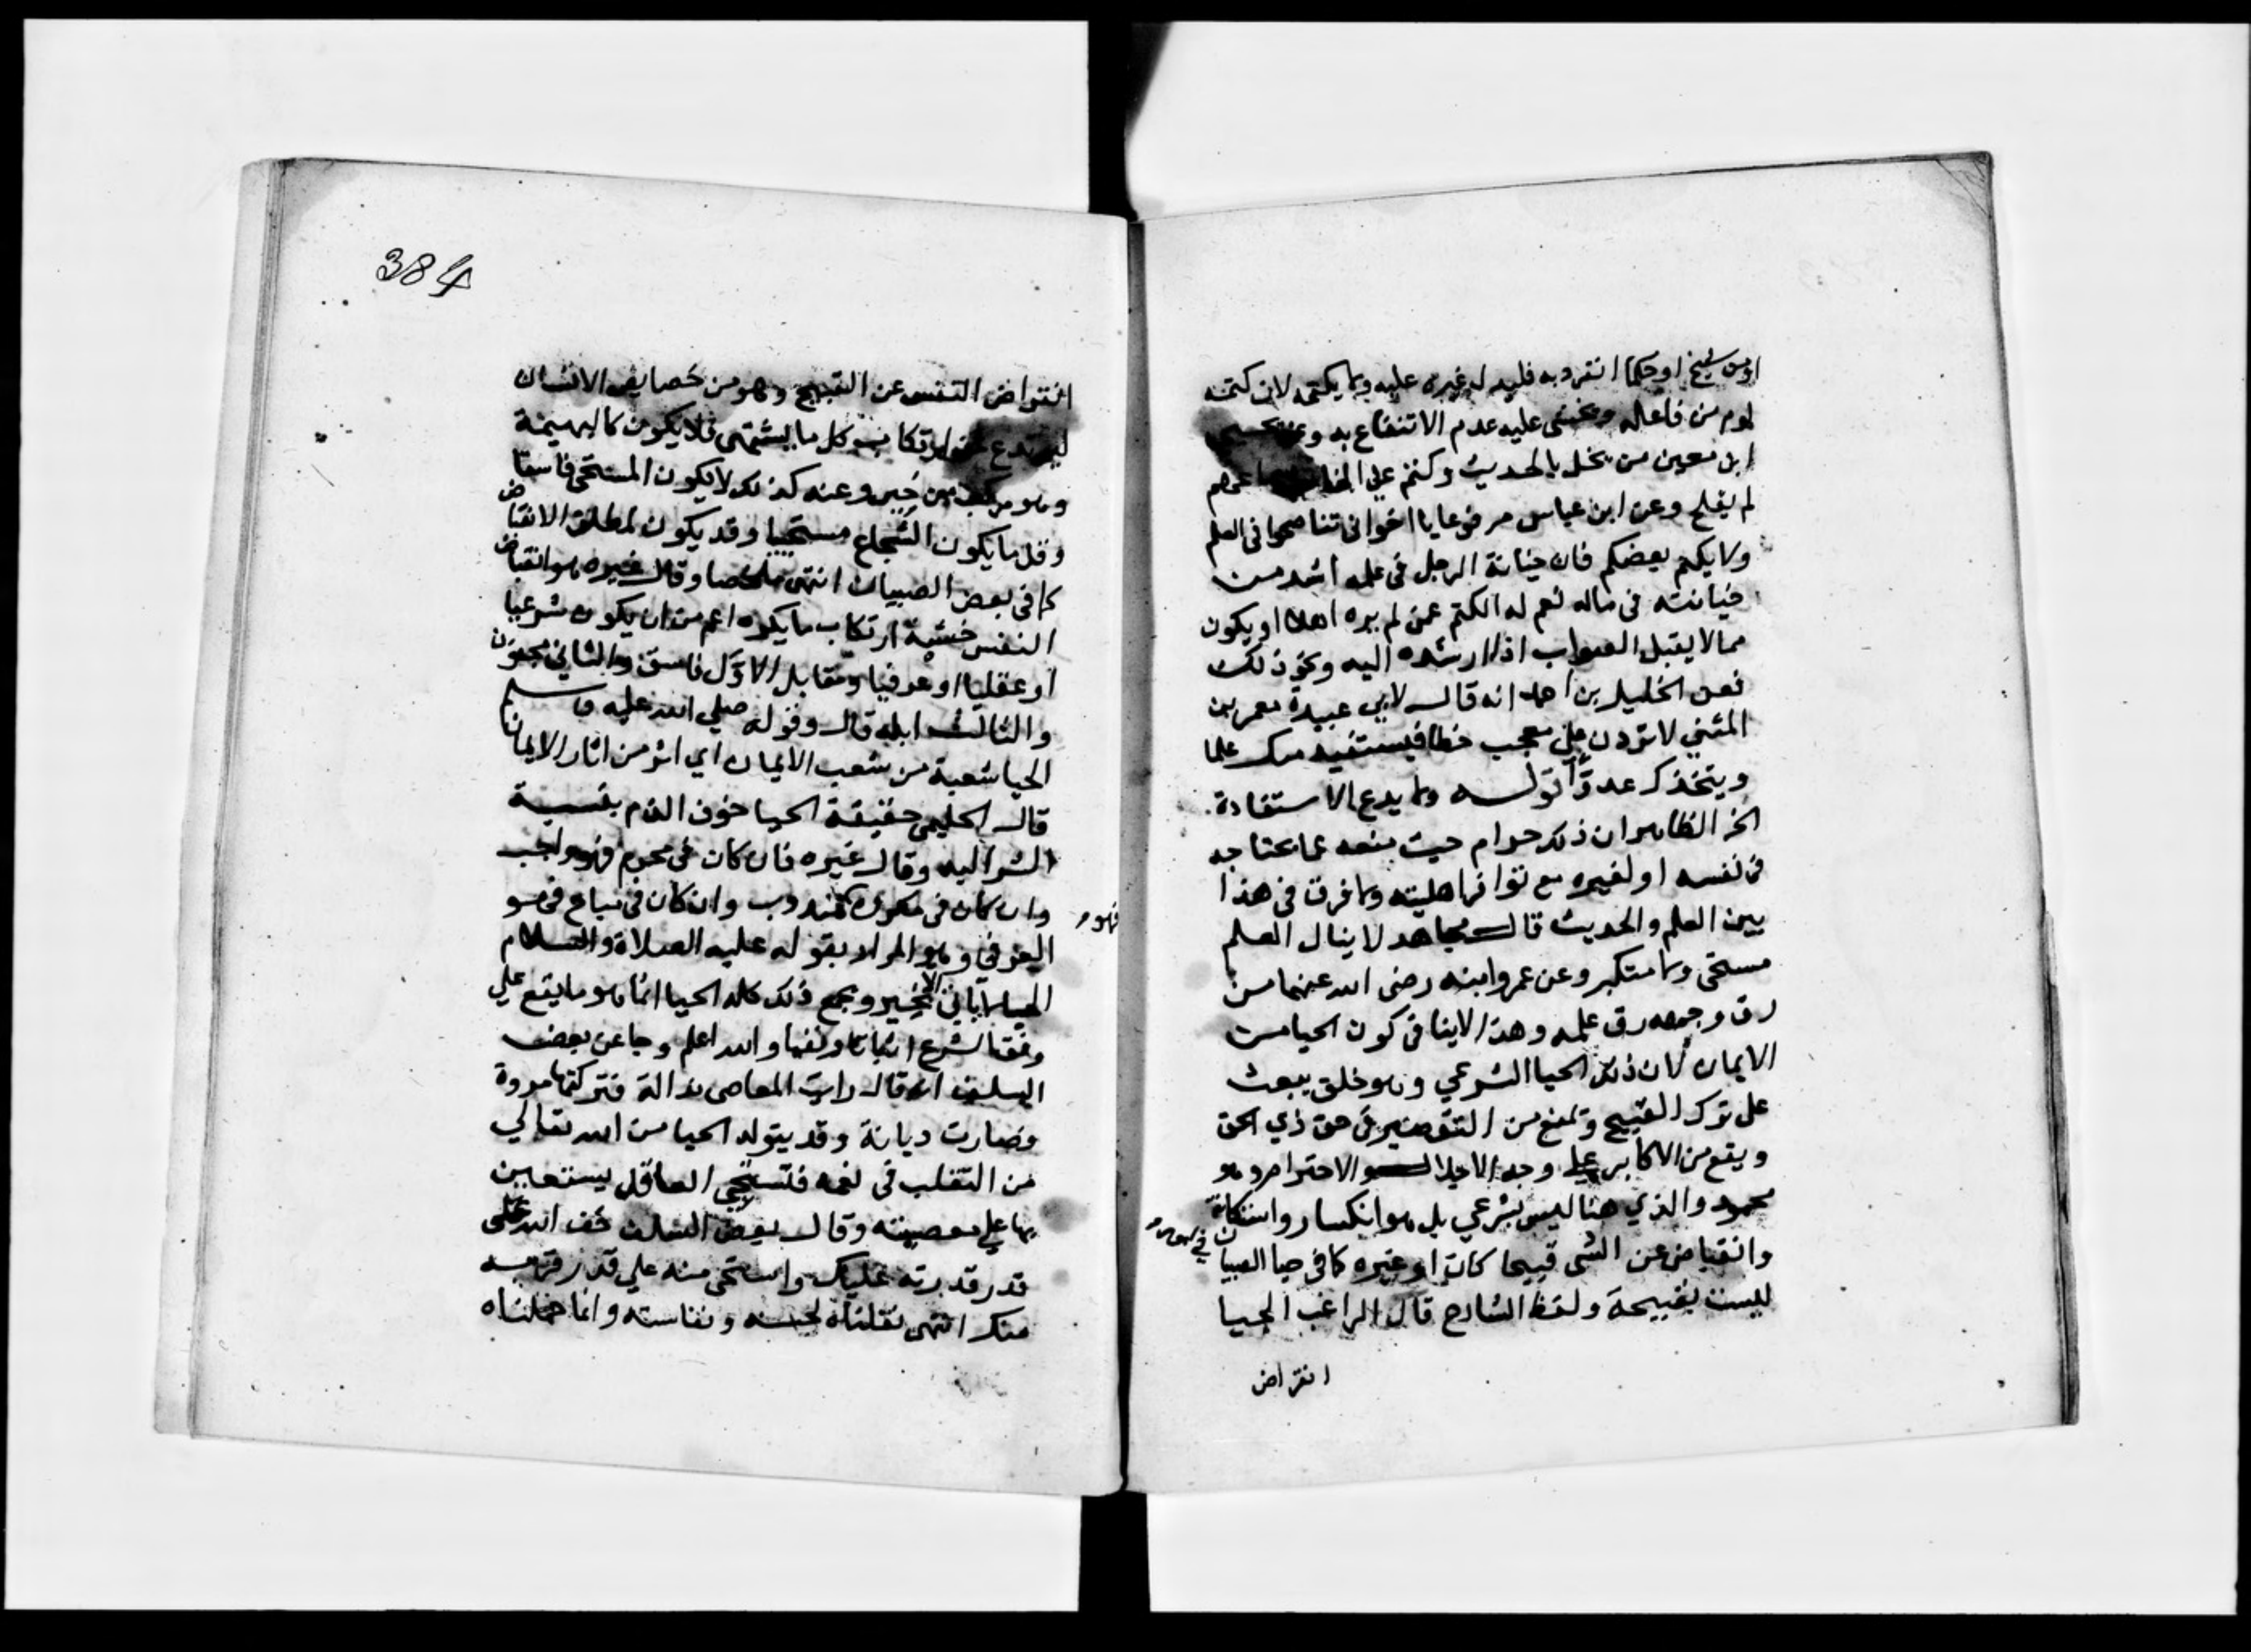 او من شيخ او حكما انفرد به فليدله غيره عليه ولا يكتمه لان كتمته
لوم من فاعله ويخشى عليه عدم الانتفاع به وعن
ابن معين من بخل بالحديث وكتم على
لم يفلح وعن ابن عباس مرفوعا يا اخواني تناصحوا في العلم
ولا يكتم بعضكم فان خيانة الرجل في علمه اشد من
خيانته في ماله نعم له الكتم عمن لم يره اهلا او يكون
ممن لا يقبل الصواب اذا ارشده اليه ونحو ذلك
فعن الخليل بن احمد انه قال لابي عبيدة معمر بن
المثني لا تردن علي معجب خطا فيستفيد منك علما
ويتخذك عدوا قوله ولا يدع الاستفادة
الخ الظاهر ان ذلك حرام حيث منعه عما يحتاجه
في نفسه او لغيره مع توافر اهليته ولا فرق في هذا
بين العلم والحديث قال مجاهد لا ينال العلم
مستحي ولا متكبر وعن عمر وابنه رضى الله عنهما من
رق وجهه رق علمه وهذا لا ينافي كون الحيا من
الايمان لان ذلك الحيا الشرعي وهو خلق يبعث
على ترك القبيح ويمنع من التقصير في حق ذي الحق
ويقع من الاكابر على وجه الاجلال والاحترام وهو
محمود والذي هنا ليس بشرعي بل هو انكسار واستكانة
وانقباض عن الشى قبيحا كان او غيره كما في حيا الصبيان
ليست بقبيحة ولفظ الشارح قال الراغب الحيا
انقراض
384
انقراض النفس عن القبيح وهو من خصايص الانسان
ليرتدع عن ارتكاب كل ما يشتهى فلا يكون كالبهيمة
وهو مركب من جبن وعفه كذلك لا يكون المستحي فاسقا
وقل ما يكون الشجاع مستحييا وقد يكون لمطلق الانقباض
كما في بعض الصبيان انتهى ملخصا وقال غيره هو انقباض
النفس خشية ارتكاب ما يكره اعم من ان يكون شرعيا
او عقليا او عرفيا ومقابل الاول فاسق والثاني مجنون
والثالث ابله قال وقوله صلي الله عليه وسلم
الحيا شعبة من شعب الايمان اي اثر من اثار الايمان
قال الحليمي حقيقة الحيا خوف الذم بنسبة
الشر اليه وقال غيره فان كان في محرم فهو واجب
وان كان في مكروه فهو مندوب وان كان في مباح فهو
العرفي وهو المراد بقوله عليه الصلاة والسلام
الحيا لا ياتي الا بخير ويجمع ذلك كله الحيا انما هو ما يقع على
وفق الشرع اثباتا ونفيا والله اعلم وجا عن بعض
السلف انه قال رايت المعاصى نذالة فتركتها مروة
فصارت ديانة وقد يتولد الحيا من الله تعالي
من التقلب في نعمه فتستحي العاقل يستعين
بها على معصيته وقال بعض السلف خف الله على
قدر قدرته عليك واستحي منه علي قدر قربه
منك انتهى نقلناه لحسنه ونفاسته وانما حملناه